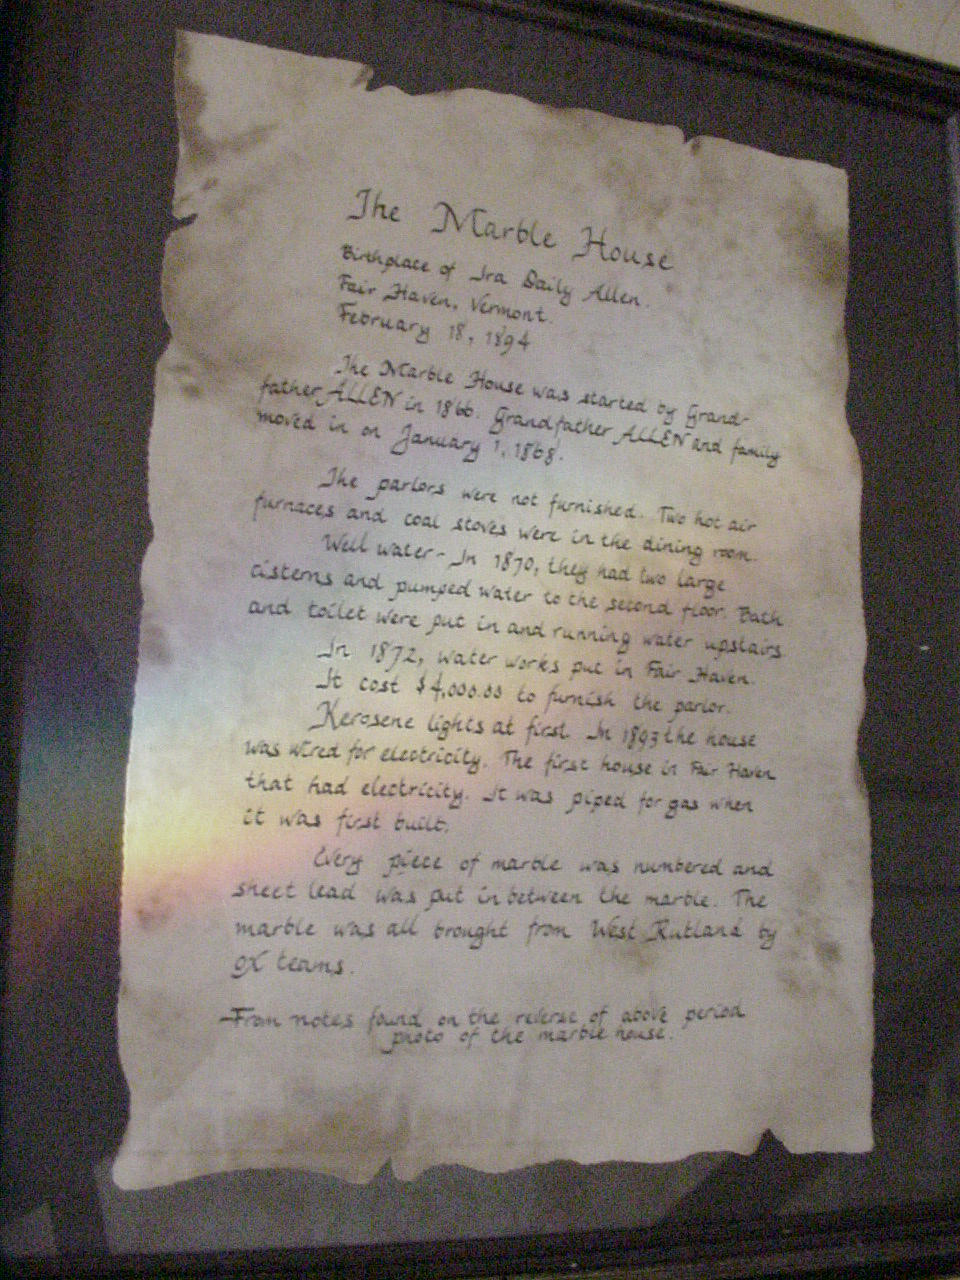 The Marble House
Birthplace of Ira Daily Allen.
Fair Haven, Vermont.
February 18, 1894
The Marble House was started by Grand-
father ALLEN in 1866. Grandfather ALLEN and family
moved in on January 1, 1868.
The parlors were not furnished. Two hot air
furnaces and coal stoves were in the dining room.
Well water- In 1870, they had two large
cisterns and pumped water to the second floor. Bath
and toilet were put in and running water upstairs.
In 1872, water works put in Fair Haven.
It cost $4,000.00 to furnish the parlor.
Kerosene lights at first. In 1893 the house
was wired for electricity. The first house in Fair Haven
that had electricity. It was piped for gas when
it was first built.
Every piece of marble was numbered and
sheet lead was put in between the marble. The
marble was all brought from West Rutland by
OX teams.
-From notes found on the reverse of above period
photo of the marble house.